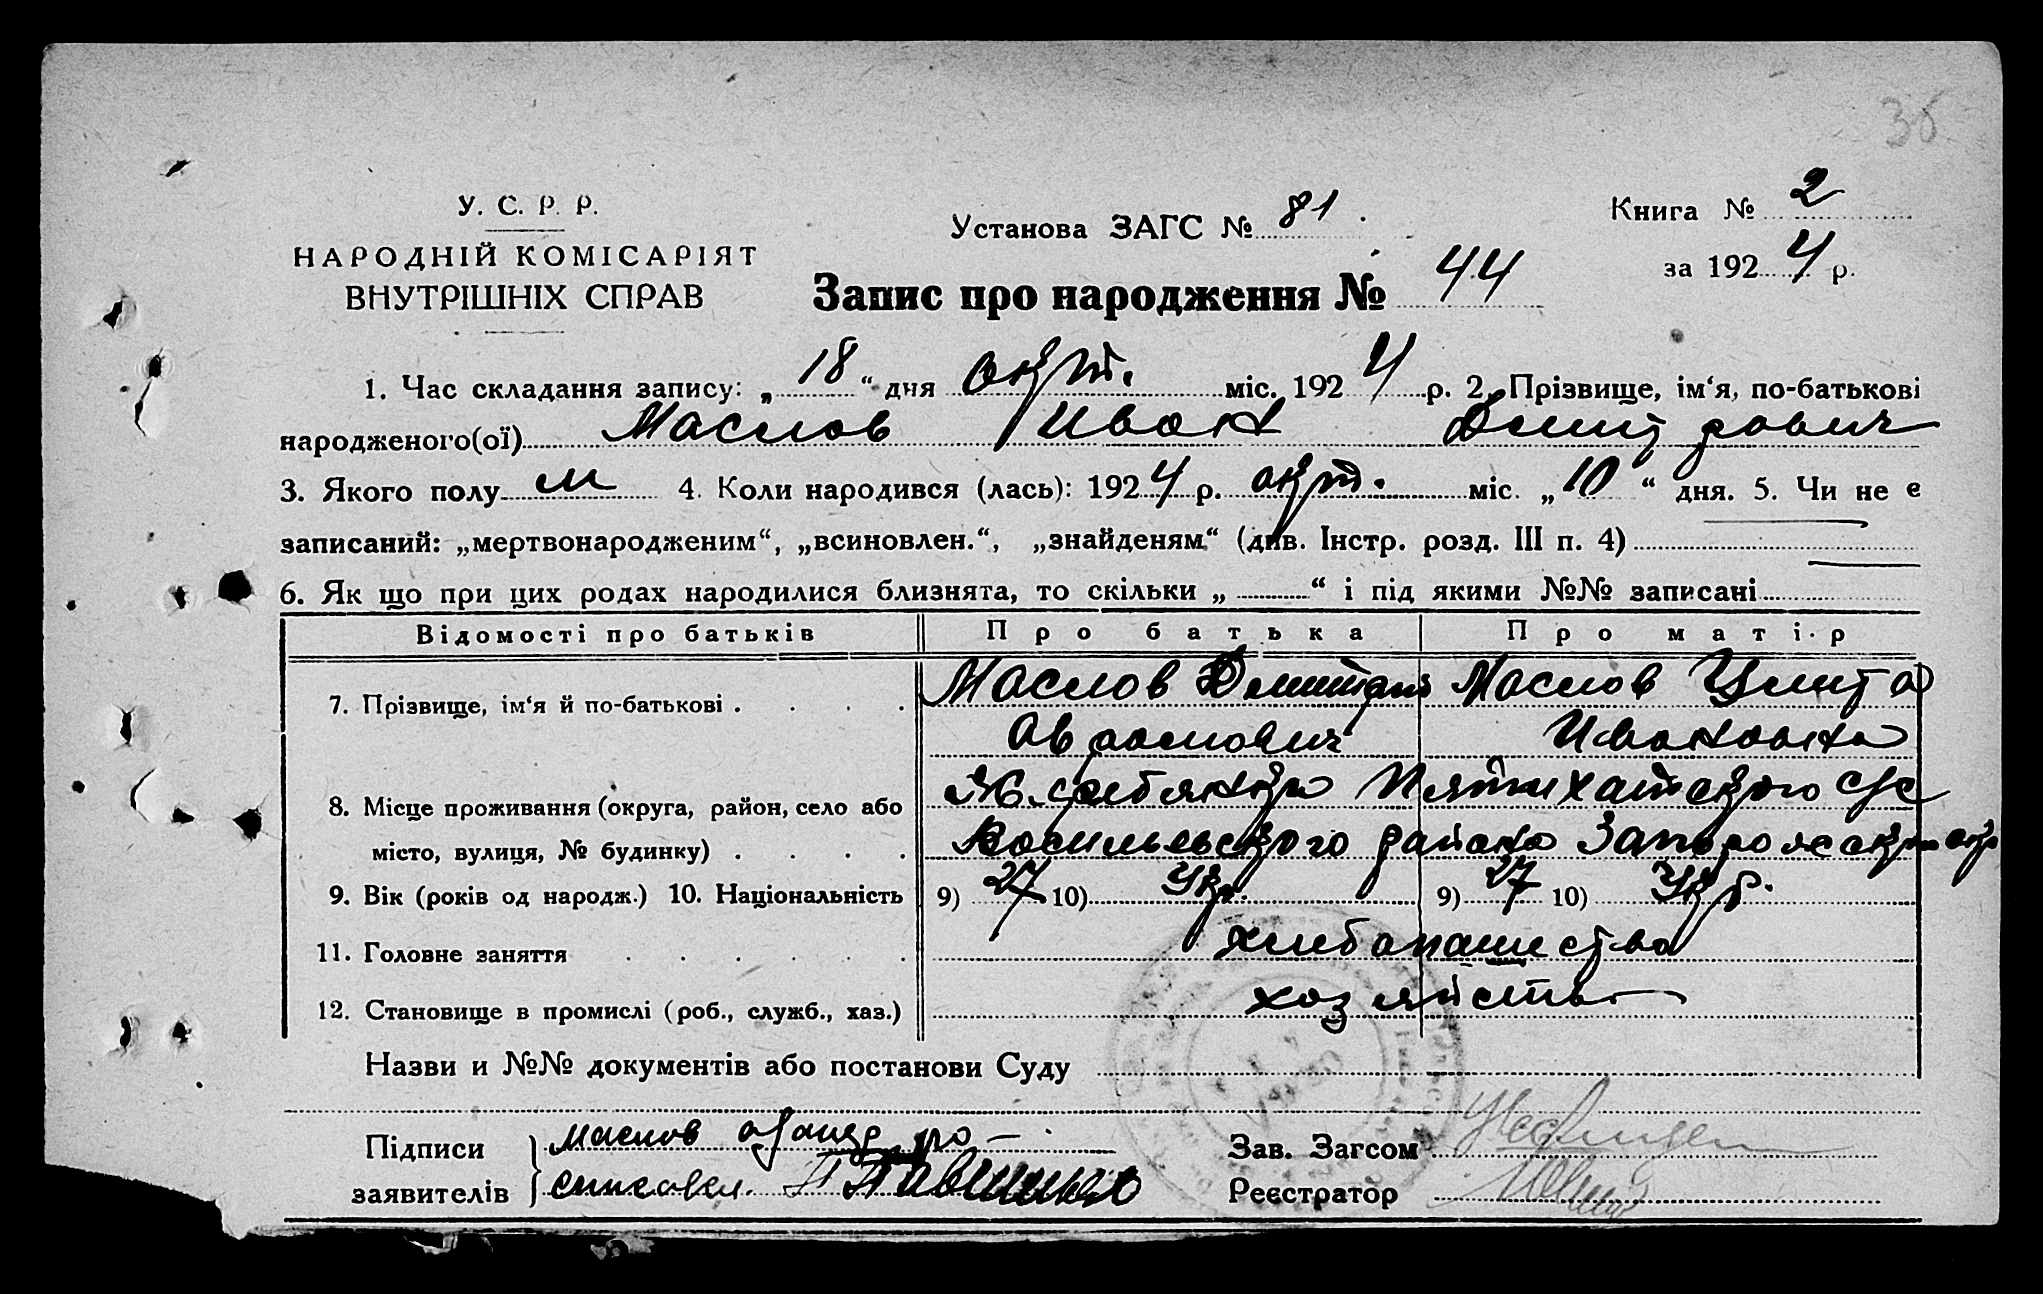 36
У. С. Р. Р.
НАРОДНІЙ КОМІСАРІЯТ
ВНУТРІШНІХ СПРАВ
Установа ЗАГС № 81.
Книга № 2
за 1924 р.
Запис про народження № 44
1. Час складання запису: „ 18 “ дня окт. міс. 1924 р. 2. Прізвище, ім‘я, по-батькові
народженого(ої) Маслов Иван Дмитрович
3. Якого полу м 4. Коли народився (лась): 1924 р. окт. міс. „ 10 “ дня. 5. Чи не є
записаний: „мертвонародженим“, „всиновлен.“, „знайденям“ (див. Інстр. розд. III п. 4)
6. Як що при цих родах народилися близнята, то скільки „ “ і під якими №№ записані
Відомості про батьків Про батька Про матір
7. Прізвище, ім‘я й по-батькові Маслов Дмитрий Маслов
Аврамович Ивановна
8. Місце проживання (округа, район, село або Пятихатского с/с
місто, вулиця, № будинку) Васильевского района Запорожского окр
9. Вік (років од народж.) 10. Національність 9) 27 10) Укр. 9) 27 10) Укр.
11. Головне заняття хлебопашество
12. Становище в промислі (роб., служб., хаз.) хозяйство
Назви и №№ документів або постанови Суду
Підписи Маслов Зав. Загсом
заявителів Реєстратор